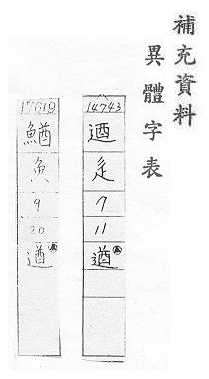 補充資料
異體字表
14743
逎
辵
7
11
遒
鰌
魚
9
20
遒